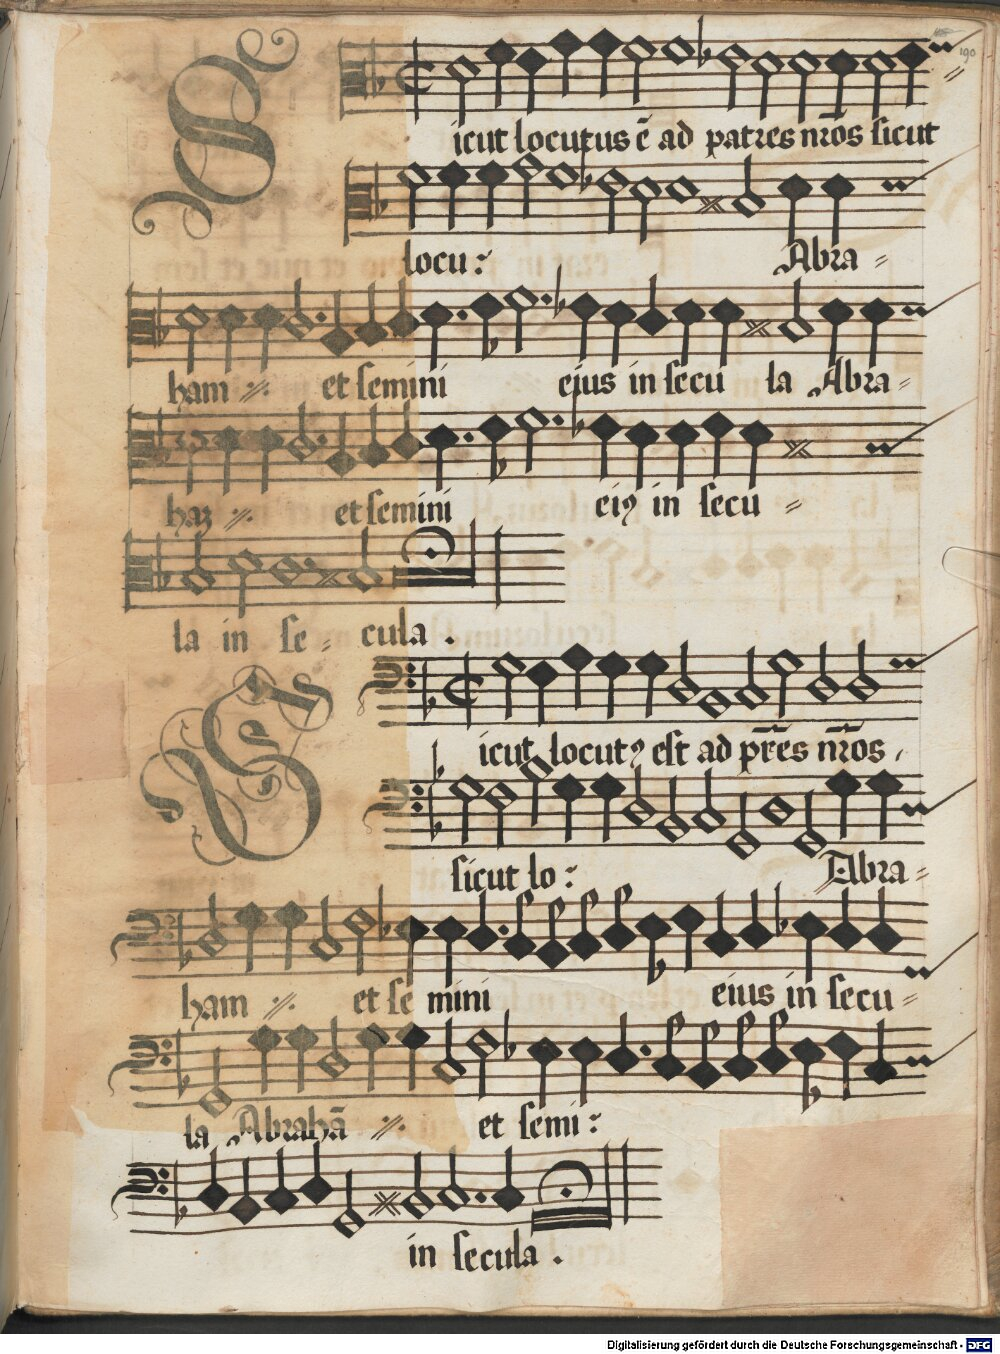 190
Sicut locutus ē ad patres nr̄os sicut
locu: Abra=
ham ⁒ et semini eius in secu la Abra=
haʒ ⁒ et semini eiꝰ in secu=
la in se= cula.
Sicut locutꝰ est ad pr̄es nr̄os,
sicut lo: Abra=
ham ⁒ et semini eius in secu=
la Abrahā ⁒ et semi:
in secula.
Digitalisierung gefördert durch die Deutsche Forschungsgemeinschaft - DFG